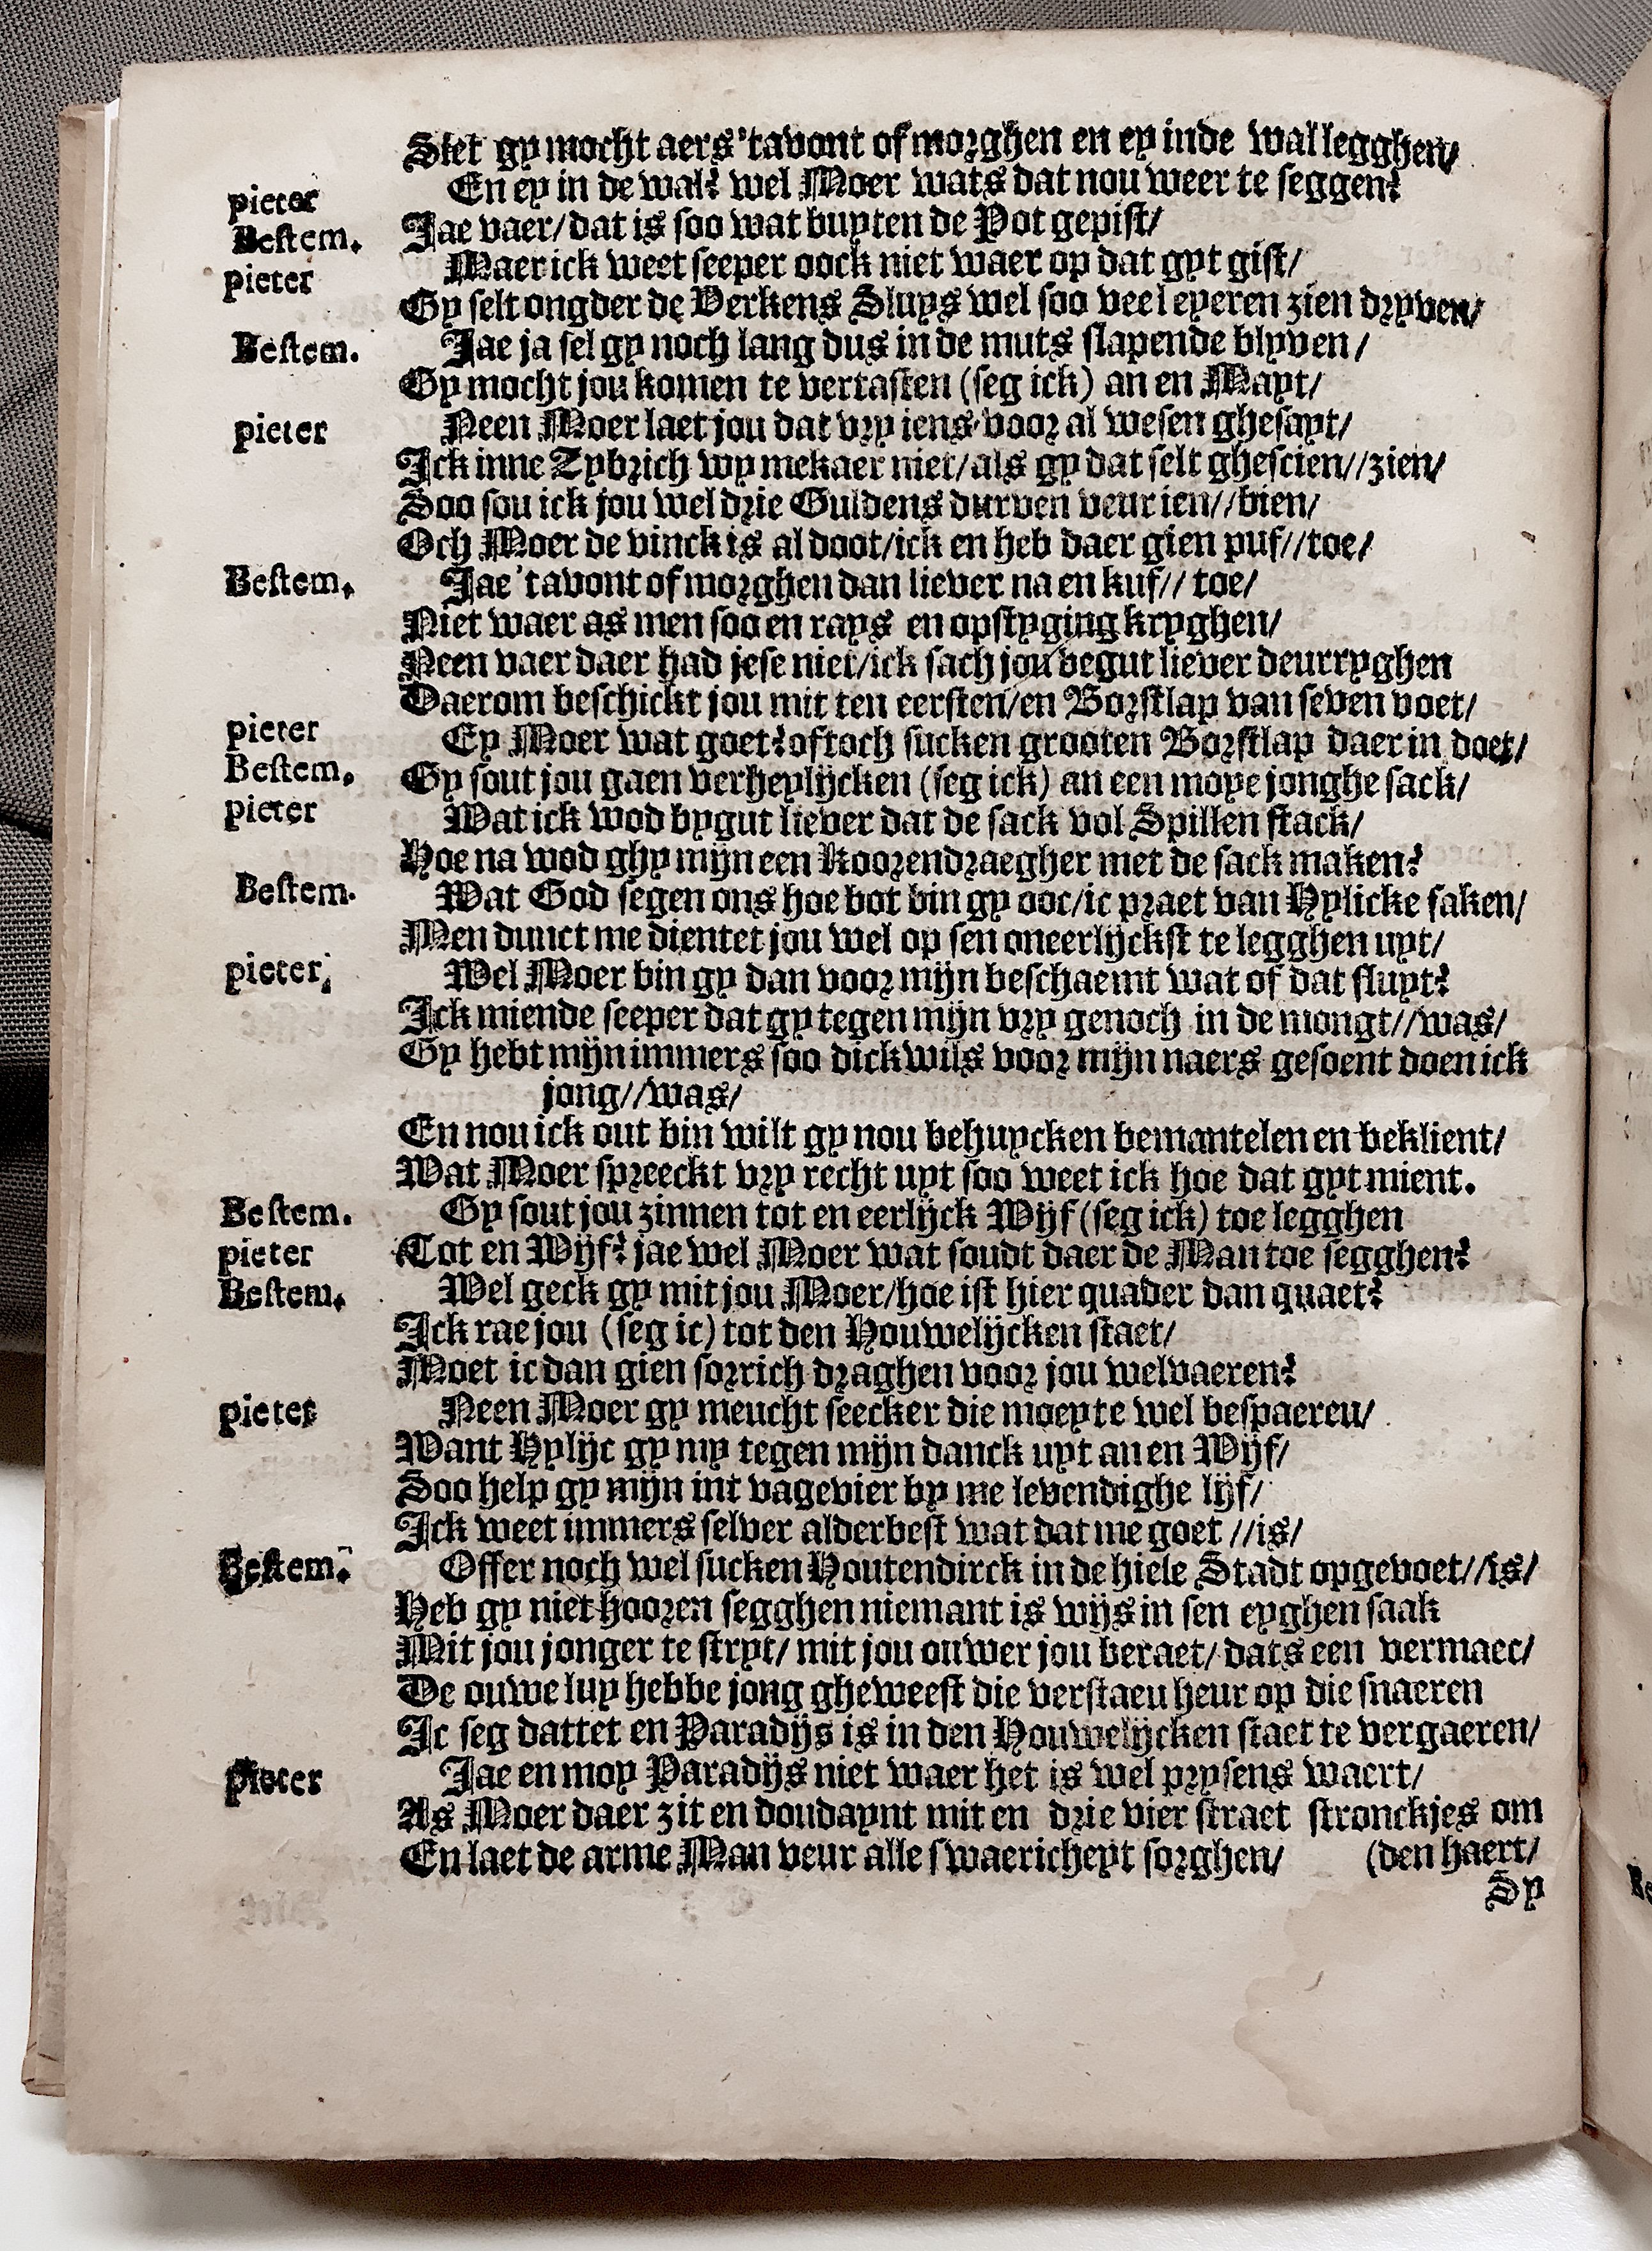 Siet gy mocht aers 'tavont of morghen en ey inde wal legghen/
pieter En ey in de wal? wel Moer wats dat nou weer te seggen?
Bestem. Jae vaer/ dat is soo wat buyten de Pot gepist/
pieter Maer ick weet seeper oock niet waer op dat gyt gist/
Gy selt ongder de Verkens Sluys wel soo veel eyeren zien dryven/
Bestem. Jae ja sel gy noch lang dus in de muts slapende blyven/
Gy mocht jou komen te vertasten (seg ick) an en Mayt/
pieter Neen Moer laet jou dat vry iens voor al wesen ghesayt/
Ick inne Zybrich wy mekaer niet/ als gy dat selt ghescien//zien/
Soo sou ick jou wel drie Guldens durven veur ien//bien/
Och Moer de vinck is al doot/ick en heb daer gien puf//toe/
Bestem. Jae 'tavont of morghen dan liever na en kuf// toe/
Niet waer as men soo en rays en opstyging kryghen/
Neen vaer daer had jese niet/ick sach jou begut liever deurryghen
Daerom beschickt jou mit ten eersten/en Borstlap van seven voet/
pieter Ey Moer wat goet? of toch sucken grooten Borstlap daer in doet/
Bestem. Gy sout jou gaen verheylijcken (seg ick) an een moye jonghe sack/
pieter Wat ick wod bygut liever dat de sack vol Spillen stack/
Hoe na wod ghy mijn een Koorendraegher met de sack maken?
Bestem. Wat God segen ons hoe bot bin gy ooc/ic praet van Hylicke saken/
Men dunct me dientet jou wel op sen oneerlijckst te legghen uyt/
pieter, Wel Moer bin gy dan voor mijn beschaemt wat of dat sluyt?
Ick miende seeper dat gy tegen mijn vry genoch in de mongt//was/
Gy hebt mijn immers soo dickwils voor mijn naers gesoent doen ick
jong//was/
En nou ick out bin wilt gy nou behuycken bemantelen en beklient/
Wat Moer spreeckt vry recht uyt soo weet ick hoe dat gyt mient.
Bestem. Gy sout jou zinnen tot en eerlijck Wijf (seg ick) toe legghen
pieter Tot en Wijf? jae wel Moer wat soudt daer de Man toe segghen?
Bestem. Wel geck gy mit jou Moer/hoe ist hier quader dan quaet?
Ick rae jou (seg ic) tot den Houwelijcken staet/
Moet ic dan gien sorrich draghen voor jou welvaeren?
pieter Neen Moer gy meucht seecker die moeyte wel bespaeren/
Want Hylijc gy my tegen mijn danck uyt an en Wijf/
Soo help gy mijn int vagevier by me levendighe lijf/
Ick weet immers selver alderbest wat dat me goet //is/
Bestem. Offer noch wel sucken Houtendirck in de hiele Stadt opgevoet//is/
Heb gy niet hooren segghen niemant is wijs in sen eyghen saak
Mit jou jonger te stryt/ mit jou ouwer jou beraet/ dats een vermaec/
De ouwe luy hebbe jong gheweest die verstaeu heur op die snaeren
Ic seg dattet en Paradijs is in den Houwelijcken staet te vergaeren/
pieter Jae en moy Paradijs niet waer het is wel prysens waert/
As Moer daer zit en doudaynt mit en drie vier straet stronckjes om
En laet de arme Man veur alle swaericheyt sorghen/ (den haert/
Sy